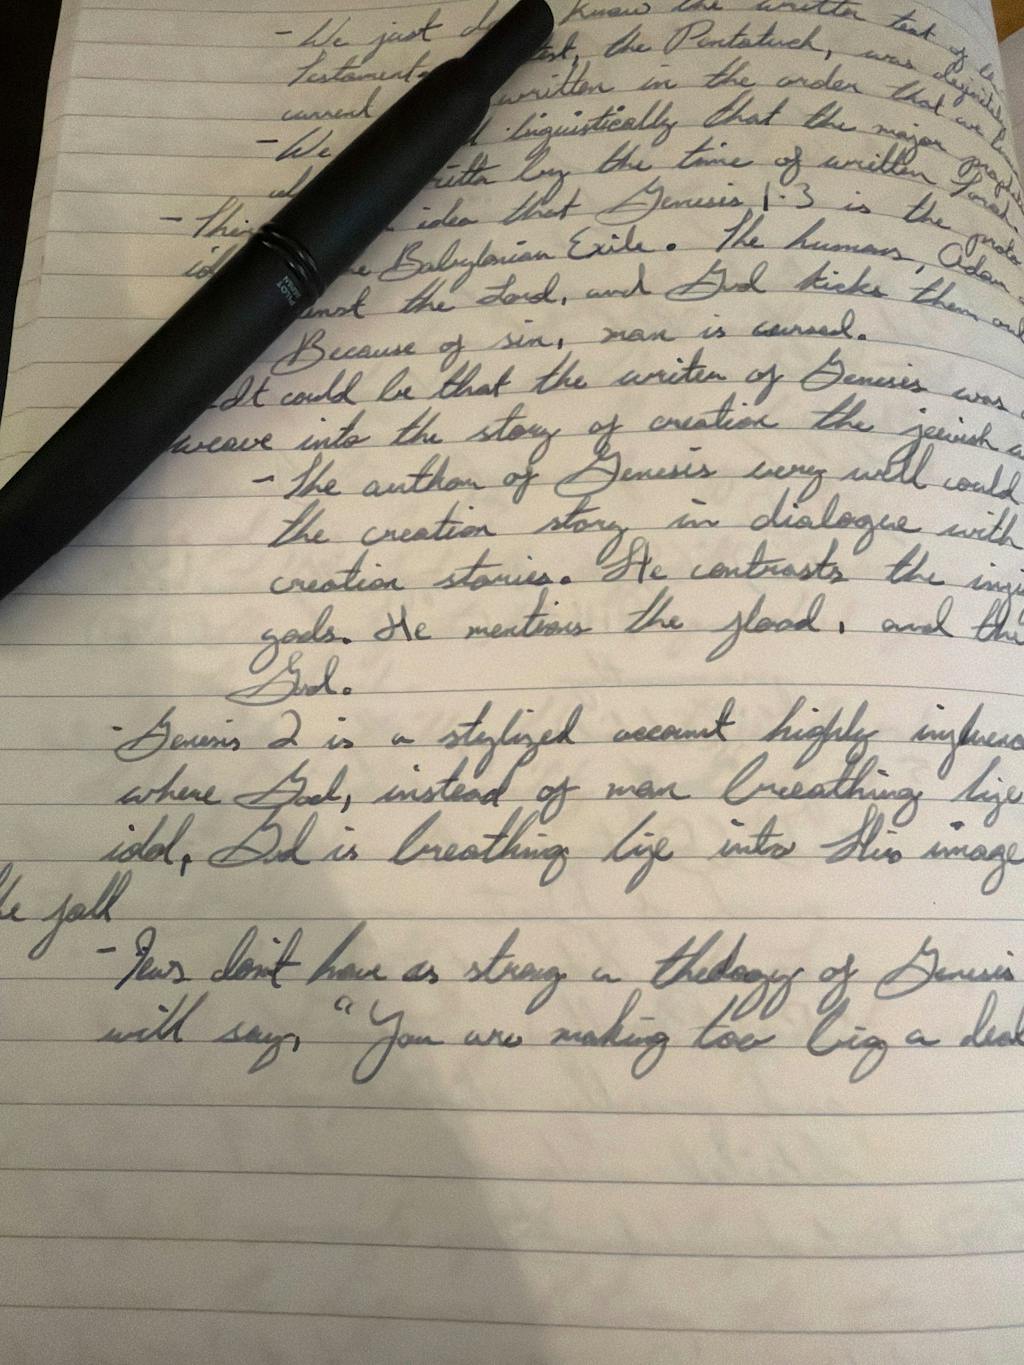 - We just know the written text of
Testament test, the Pentatuch, was definitely
current written in the order that we have
- We linguistically that the major
by the time of written Torah
- idea that Genesis 1-3 is the proto
Babylonian Exile. The humans, Adam
the Lord, and God kicks them out
Because of sin, man is cursed.
It could be that the writer of Genesis was
weave into the story of creation the jewish
- The author of Genesis very well could
the creation story in dialogue with
creation stories. He contrasts the
gods. He mentions the flood, and the
God.
- Genesis 2 is a stylized account highly
where God, instead of man breathing life
idol, God is breathing life into His image
fall
- Jews don't have as strong a theology of Genesis
will say, "You are making too big a deal
PILOT